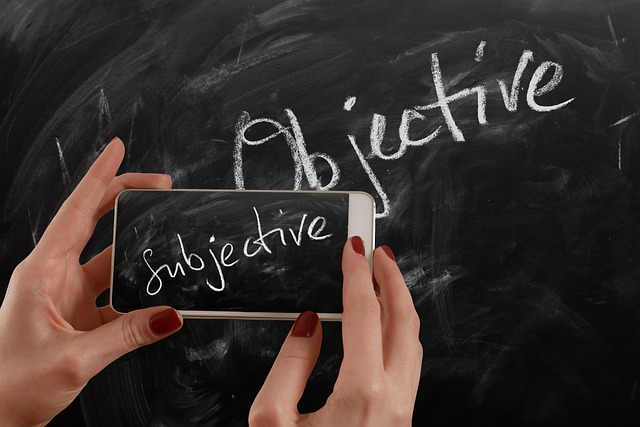 Objective
Subjective